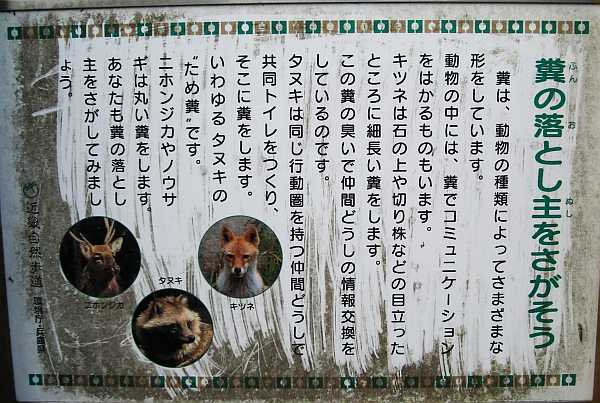 糞の落とし主をさがそう
ふん お ぬし
糞は、動物の種類によってさまざまな
形をしています。
動物の中には、糞でコミュニケーション
をはかるものもいます。
キツネは石の上や切り株などの目立った
ところに細長い糞をします。
この糞の臭いで仲間どうしの情報交換を
しているのです。
タヌキは同じ行動圏を持つ仲間どうしで
共同トイレをつくり、
そこに糞をします。
いわゆるタヌキの
"ため糞"です。
ニホンジカやノウサ
ギは丸い糞をします。
あなたも糞の落とし
主をさがしてみまし
ょう。
キツネ
タヌキ
ニホンジカ
近畿自然歩道 環境庁・兵庫県